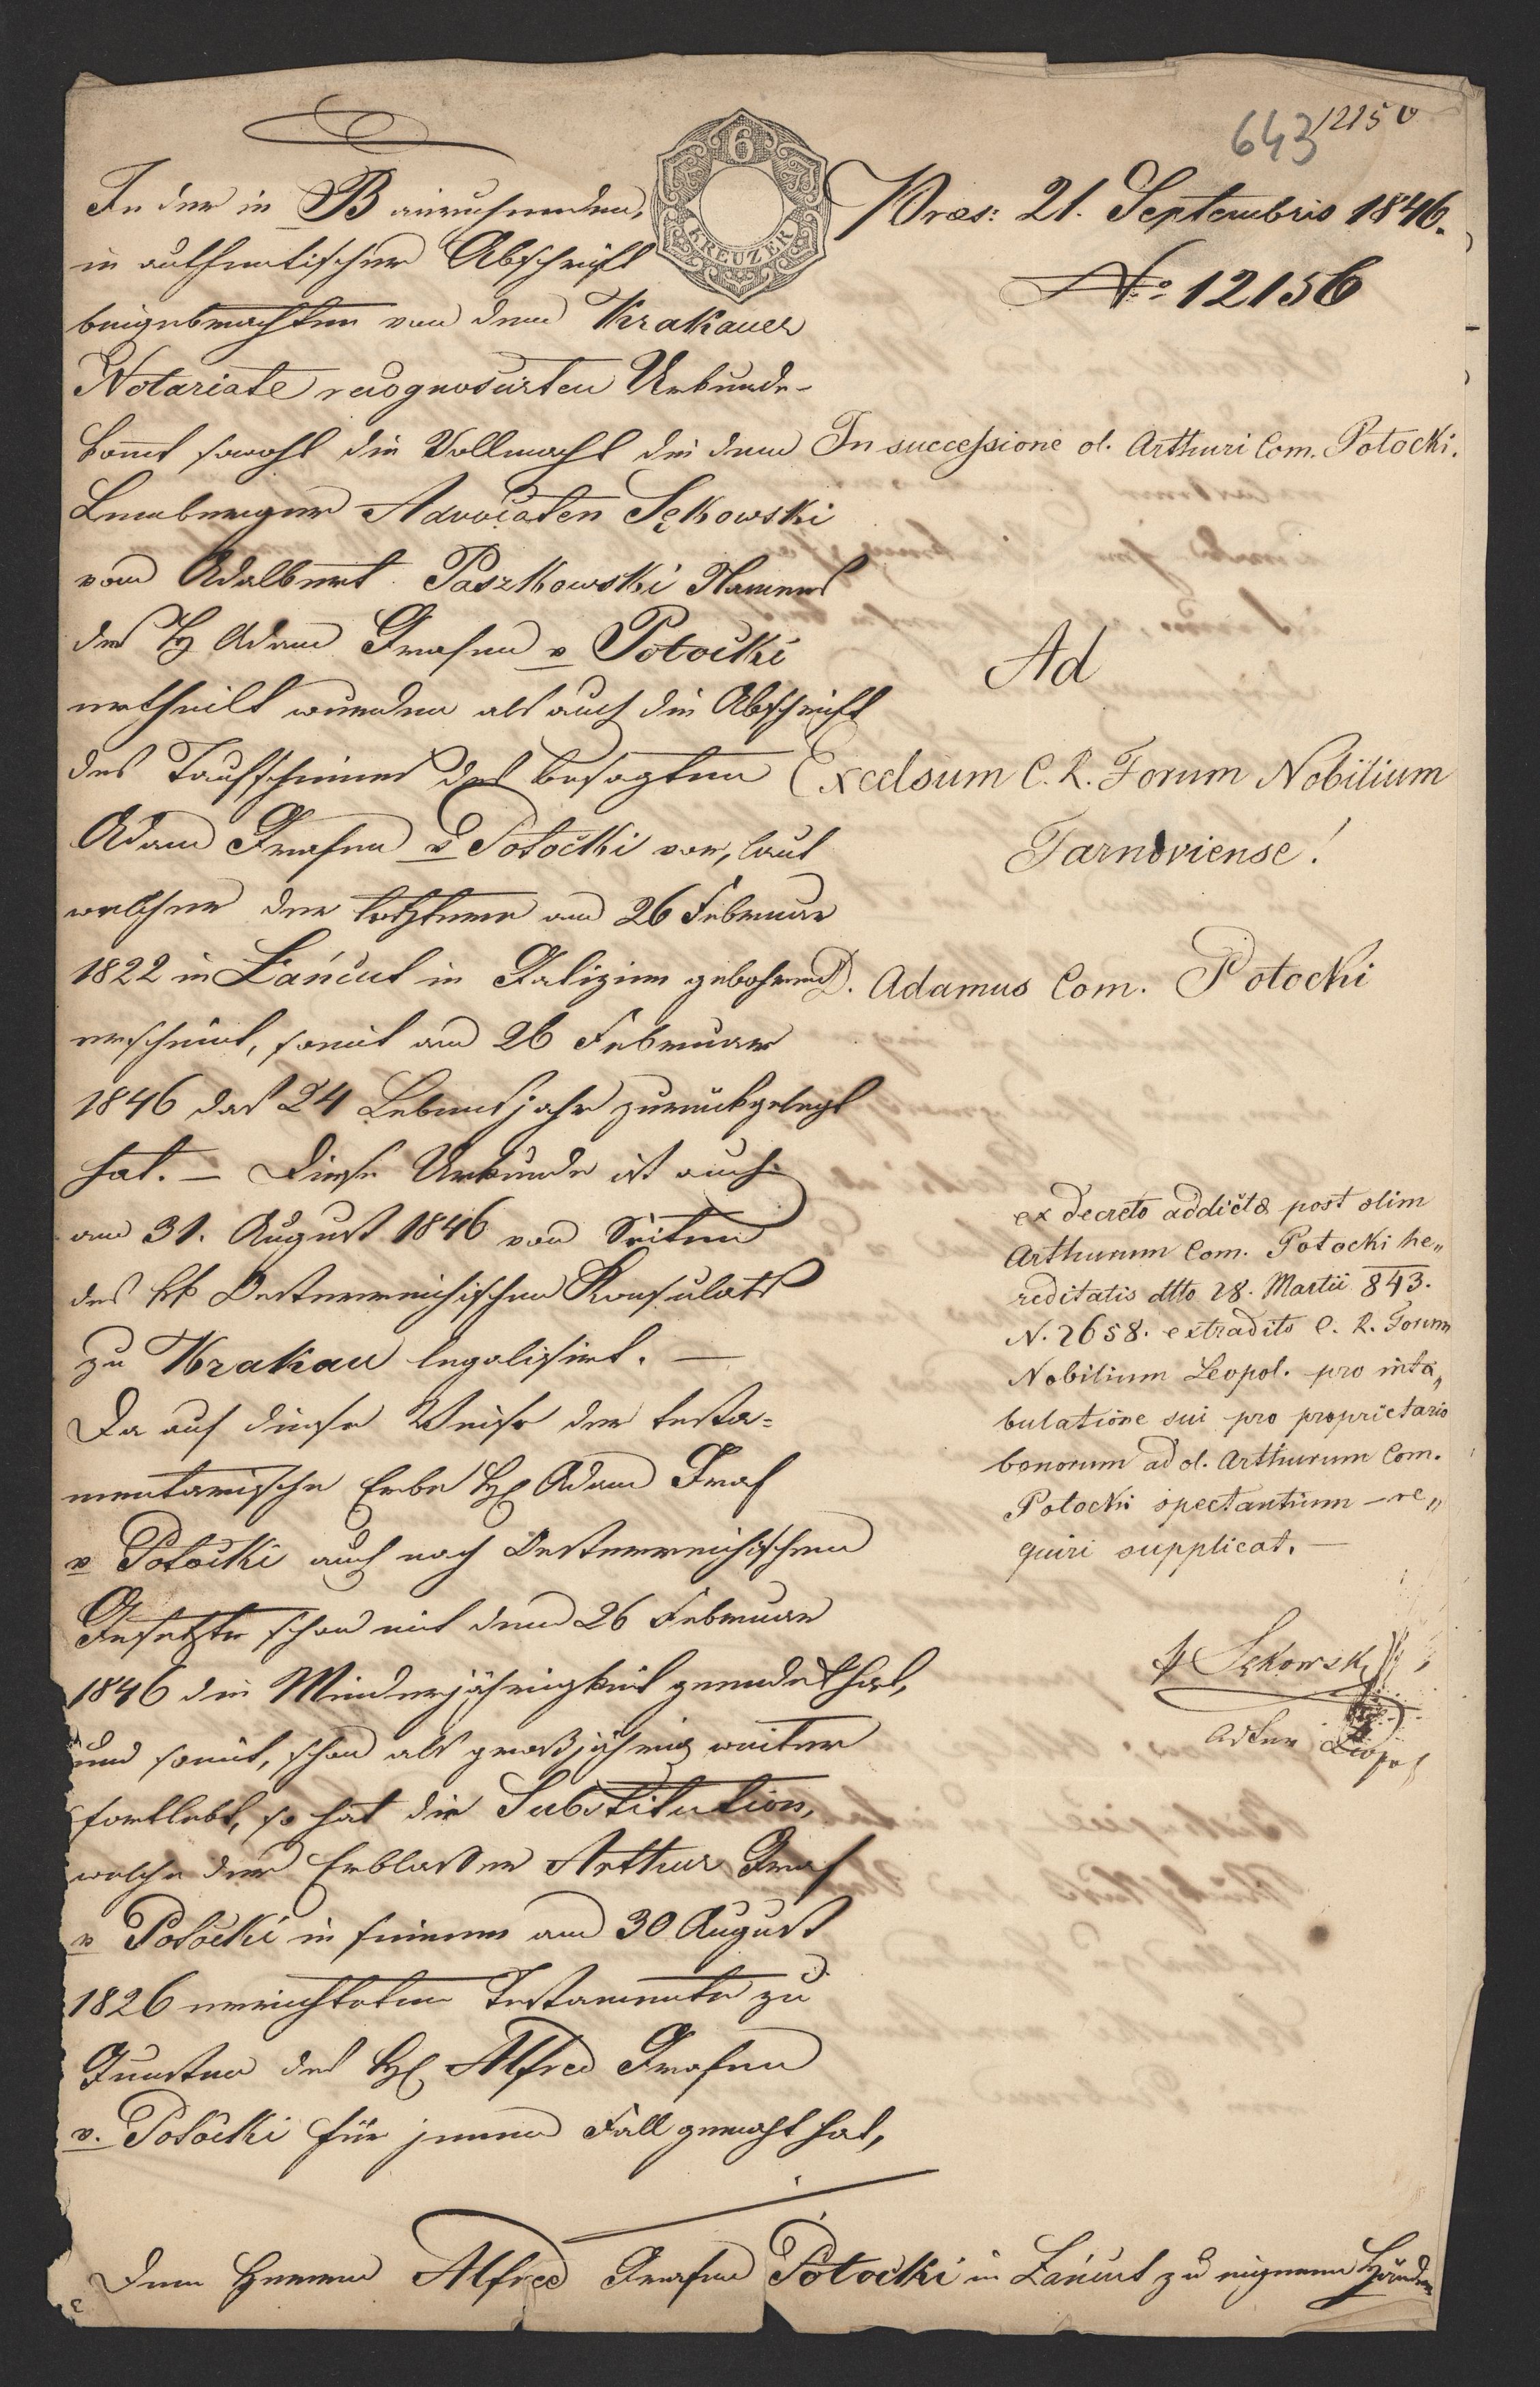 643 12150
6
KREUZER
Præs: 21. Septembris 1846.
No 12156
In successione ol. Arthuri Com. Potocki.
Ad
Excelsum C. R. Forum Nobilium
Tarnoviense!
D. Adamus Com. Potocki
ex decreto addictæ post olim
Arthurum Com. Potocki he„
reditatis dtto 28. Martii 843.
N. 2658. extradito C. R. Forum
Nobilium Leopol. pro inta„
bulatione sui pro proprietario
bonorum ad ol. Arthurum Com.
Potocki spectantium – re„
quiri supplicat. –
Sękowski
In der in B einruhenden,
in authentischer Abschrift
beigebrachten von dem Krakauer
Notariate recognoscirten Urkunde
kommt sowohl die Vollmacht die dem
Lemberger Advocaten Sękowski
vom Adalbert Paszkowski Namens
des H Adam Grafen v Potocki
ertheilt wurden als auch die Abschrift
des Taufscheines des besagten
Adam Grafen v Potocki vor, laut
welcher der letztere am 26 Februar
1822 in Łańcut in Galizien gebohren
erscheint, somit am 26 Februar
1846 das 24 Lebensjahr zurückgelegt
hat. – Diese Urkunde ist auch
am 31. August 1846 von Seiten
des kk Oesterreichischen Konsulats
zu Krakau legalisirt. –
Da auf diese Weise der testa=
mentarische Erbe H Adam Graf
v Potocki auch nach Oesterreichischem
Gesetzte schon mit dem 26 Februar
1846 die Minderjährigkeit geendet hat,
und somit, schon als großjährig weiter
fortlebt, so hat die Substitution,
welche der Erblasser Arthur Graf
v Potocki in seinem am 30 August
1826 errichteten Testamente zu
Gunsten des H Alfred Grafen
v. Potocki für jenen Fall gemacht hat,
Dem Herren Alfred Grafen Potocki in Łańcut zu eigenen Händen